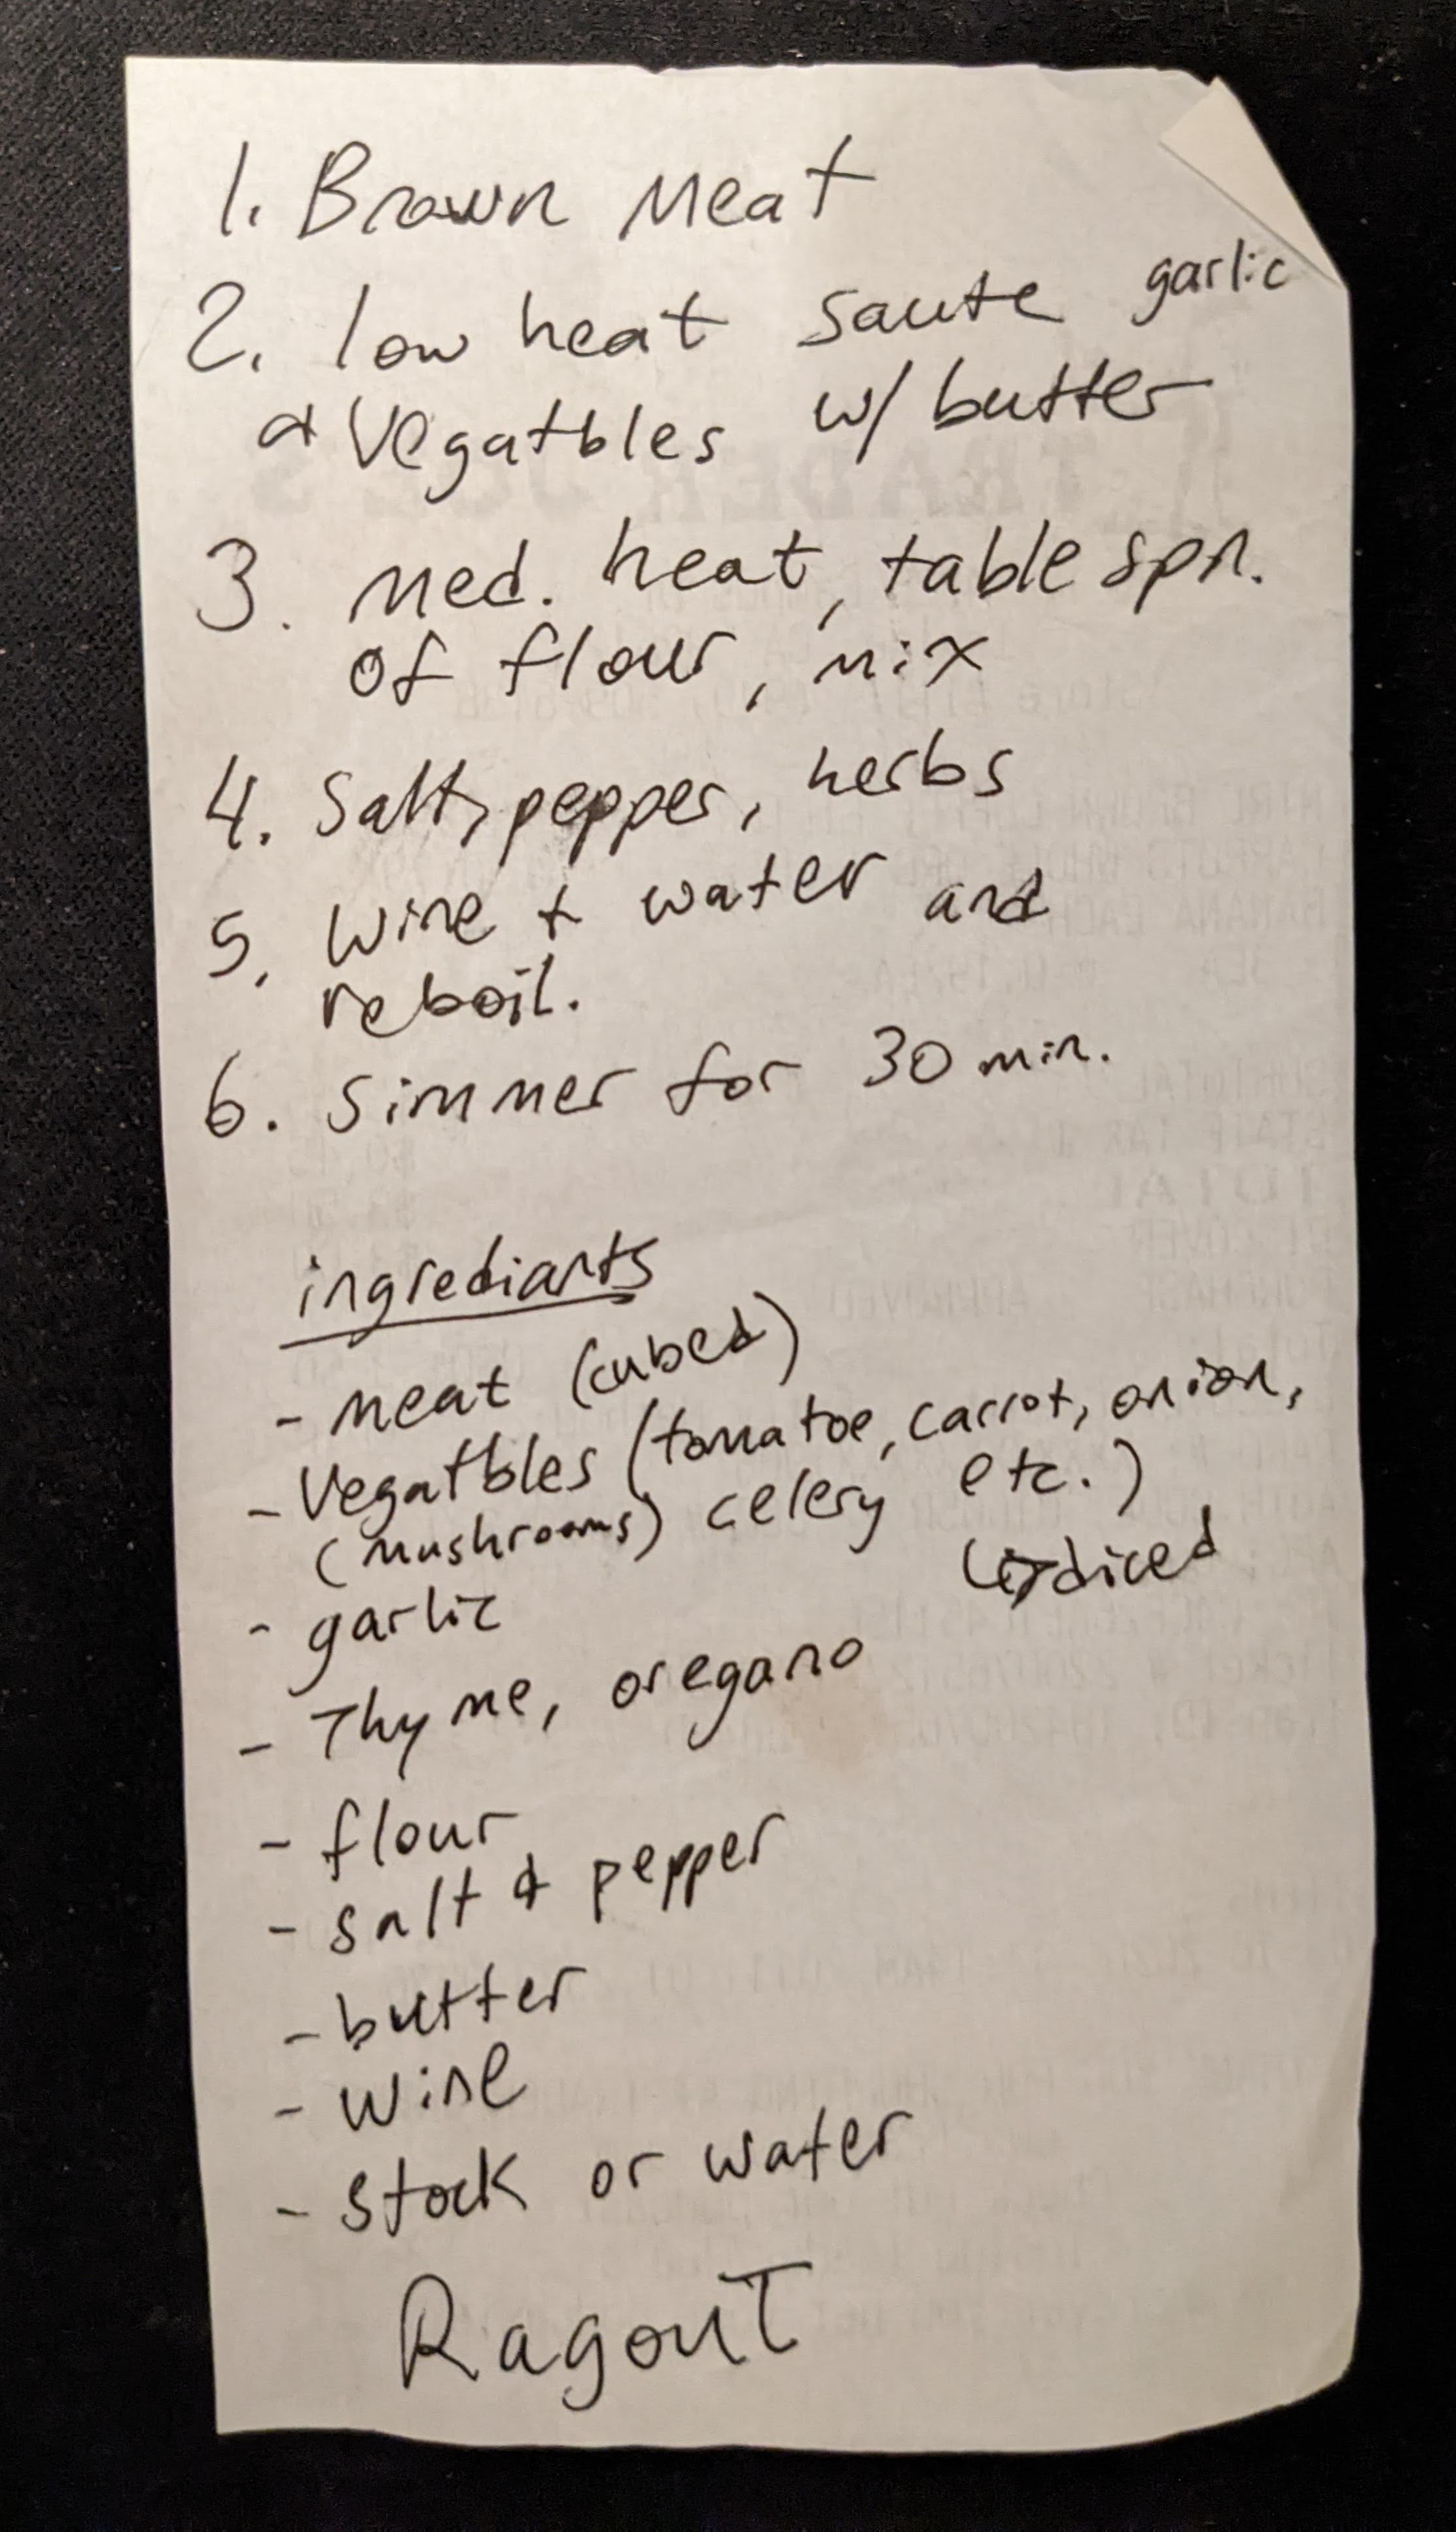 1. Brown Meat
2. low heat saute garlic
& Vegatbles w/ butter
3. Med. heat, table spn.
of flour, mix
4. Salt, pepper, herbs
5. Wine + water and
reboil.
6. Simmer for 30 min.
ingrediants
- meat (cubed)
- Vegatbles (tomatoe, carrot, onion,
(mushrooms) celery etc.)
↳diced
- garlic
- Thyme, oregano
- flour
- salt & pepper
- butter
- wine
- stock or water
Ragout
TRADER JOE'S